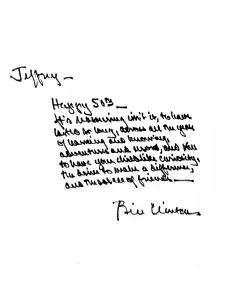 Jeffrey —
Happy 50th —
It's reassuring isn't it, to have
lasted as long, across all the years
of learning and knowing,
adventures and [], and also
to have your childlike curiosity,
the drive to make a difference,
and the solace of friends —
Bill Clinton